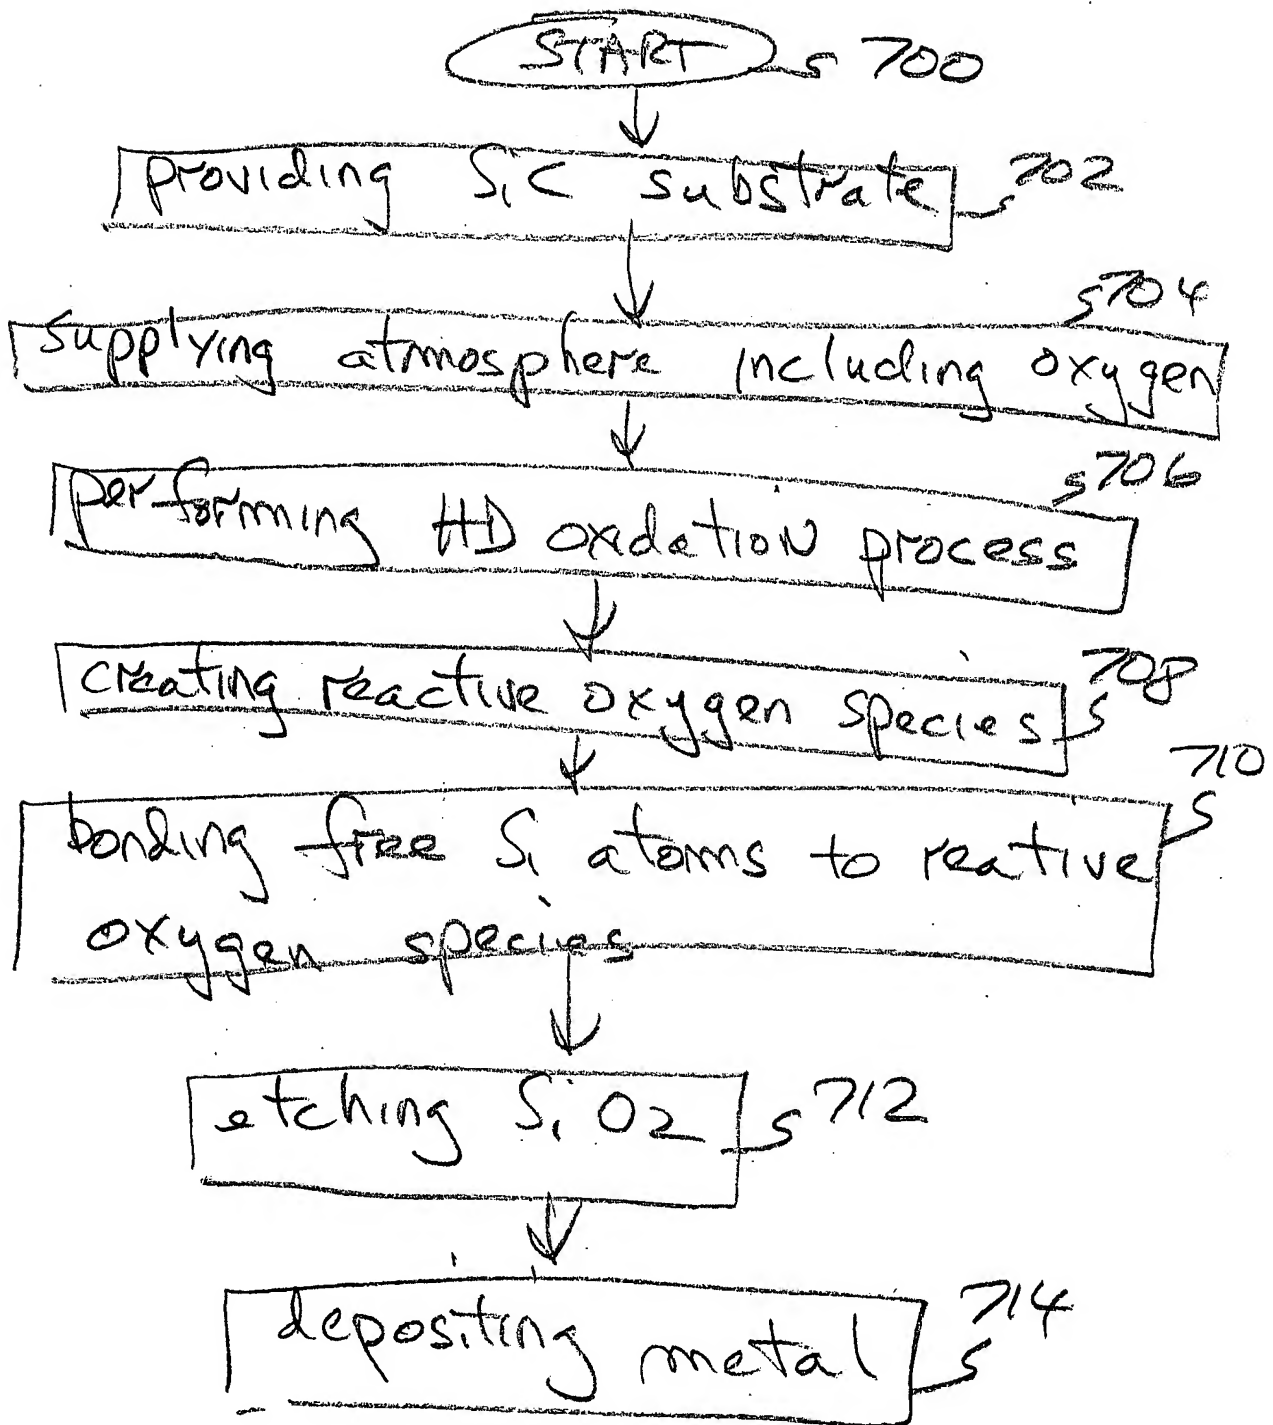 START 700
providing SiC substrate 702
704
supplying atmosphere including oxygen
706
performing HD oxdation process
708
creating reactive oxygen species
710
bonding free Si atoms to reative
oxygen species
etching SiO2 712
714
depositing metal